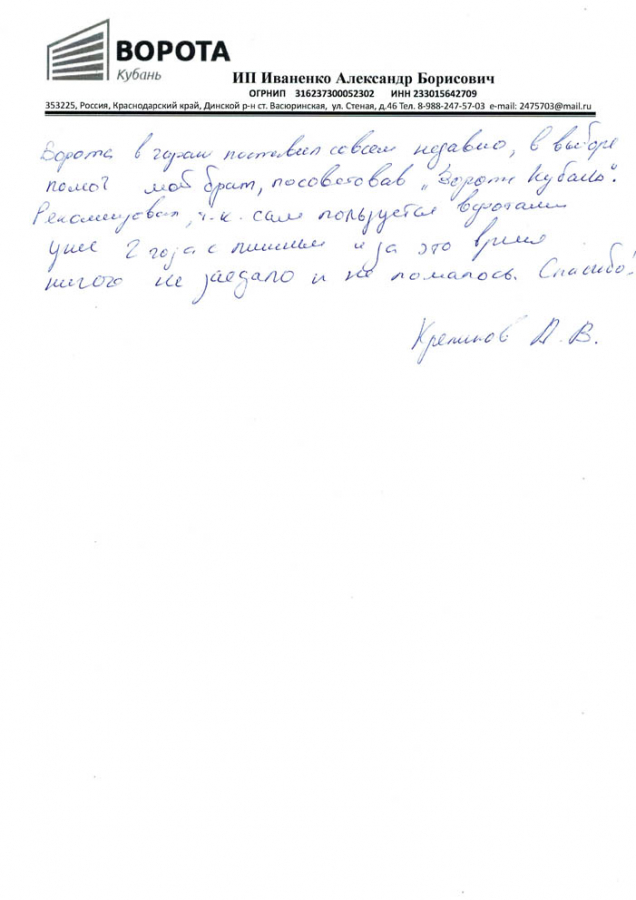 ВОРОТА
Кубань
ИП Иваненко Александр Борисович
ОГРНИП 316237300052302 ИНН 233015642709
353225, Россия, Краснодарский край, Динской р-н ст. Васюринская, ул. Степная, д.46 Тел. 8-988-247-57-03 e-mail: 2475703@mail.ru
Ворота в гараж поставил совсем недавно, в выборе
помог мой брат, посоветовав „Ворота Кубань".
Рекомендовал, т.к. сам пользуется воротами
уже 2 года с лишним и за это время
ничего не заедало и не ломалось. Спасибо!
А. В.